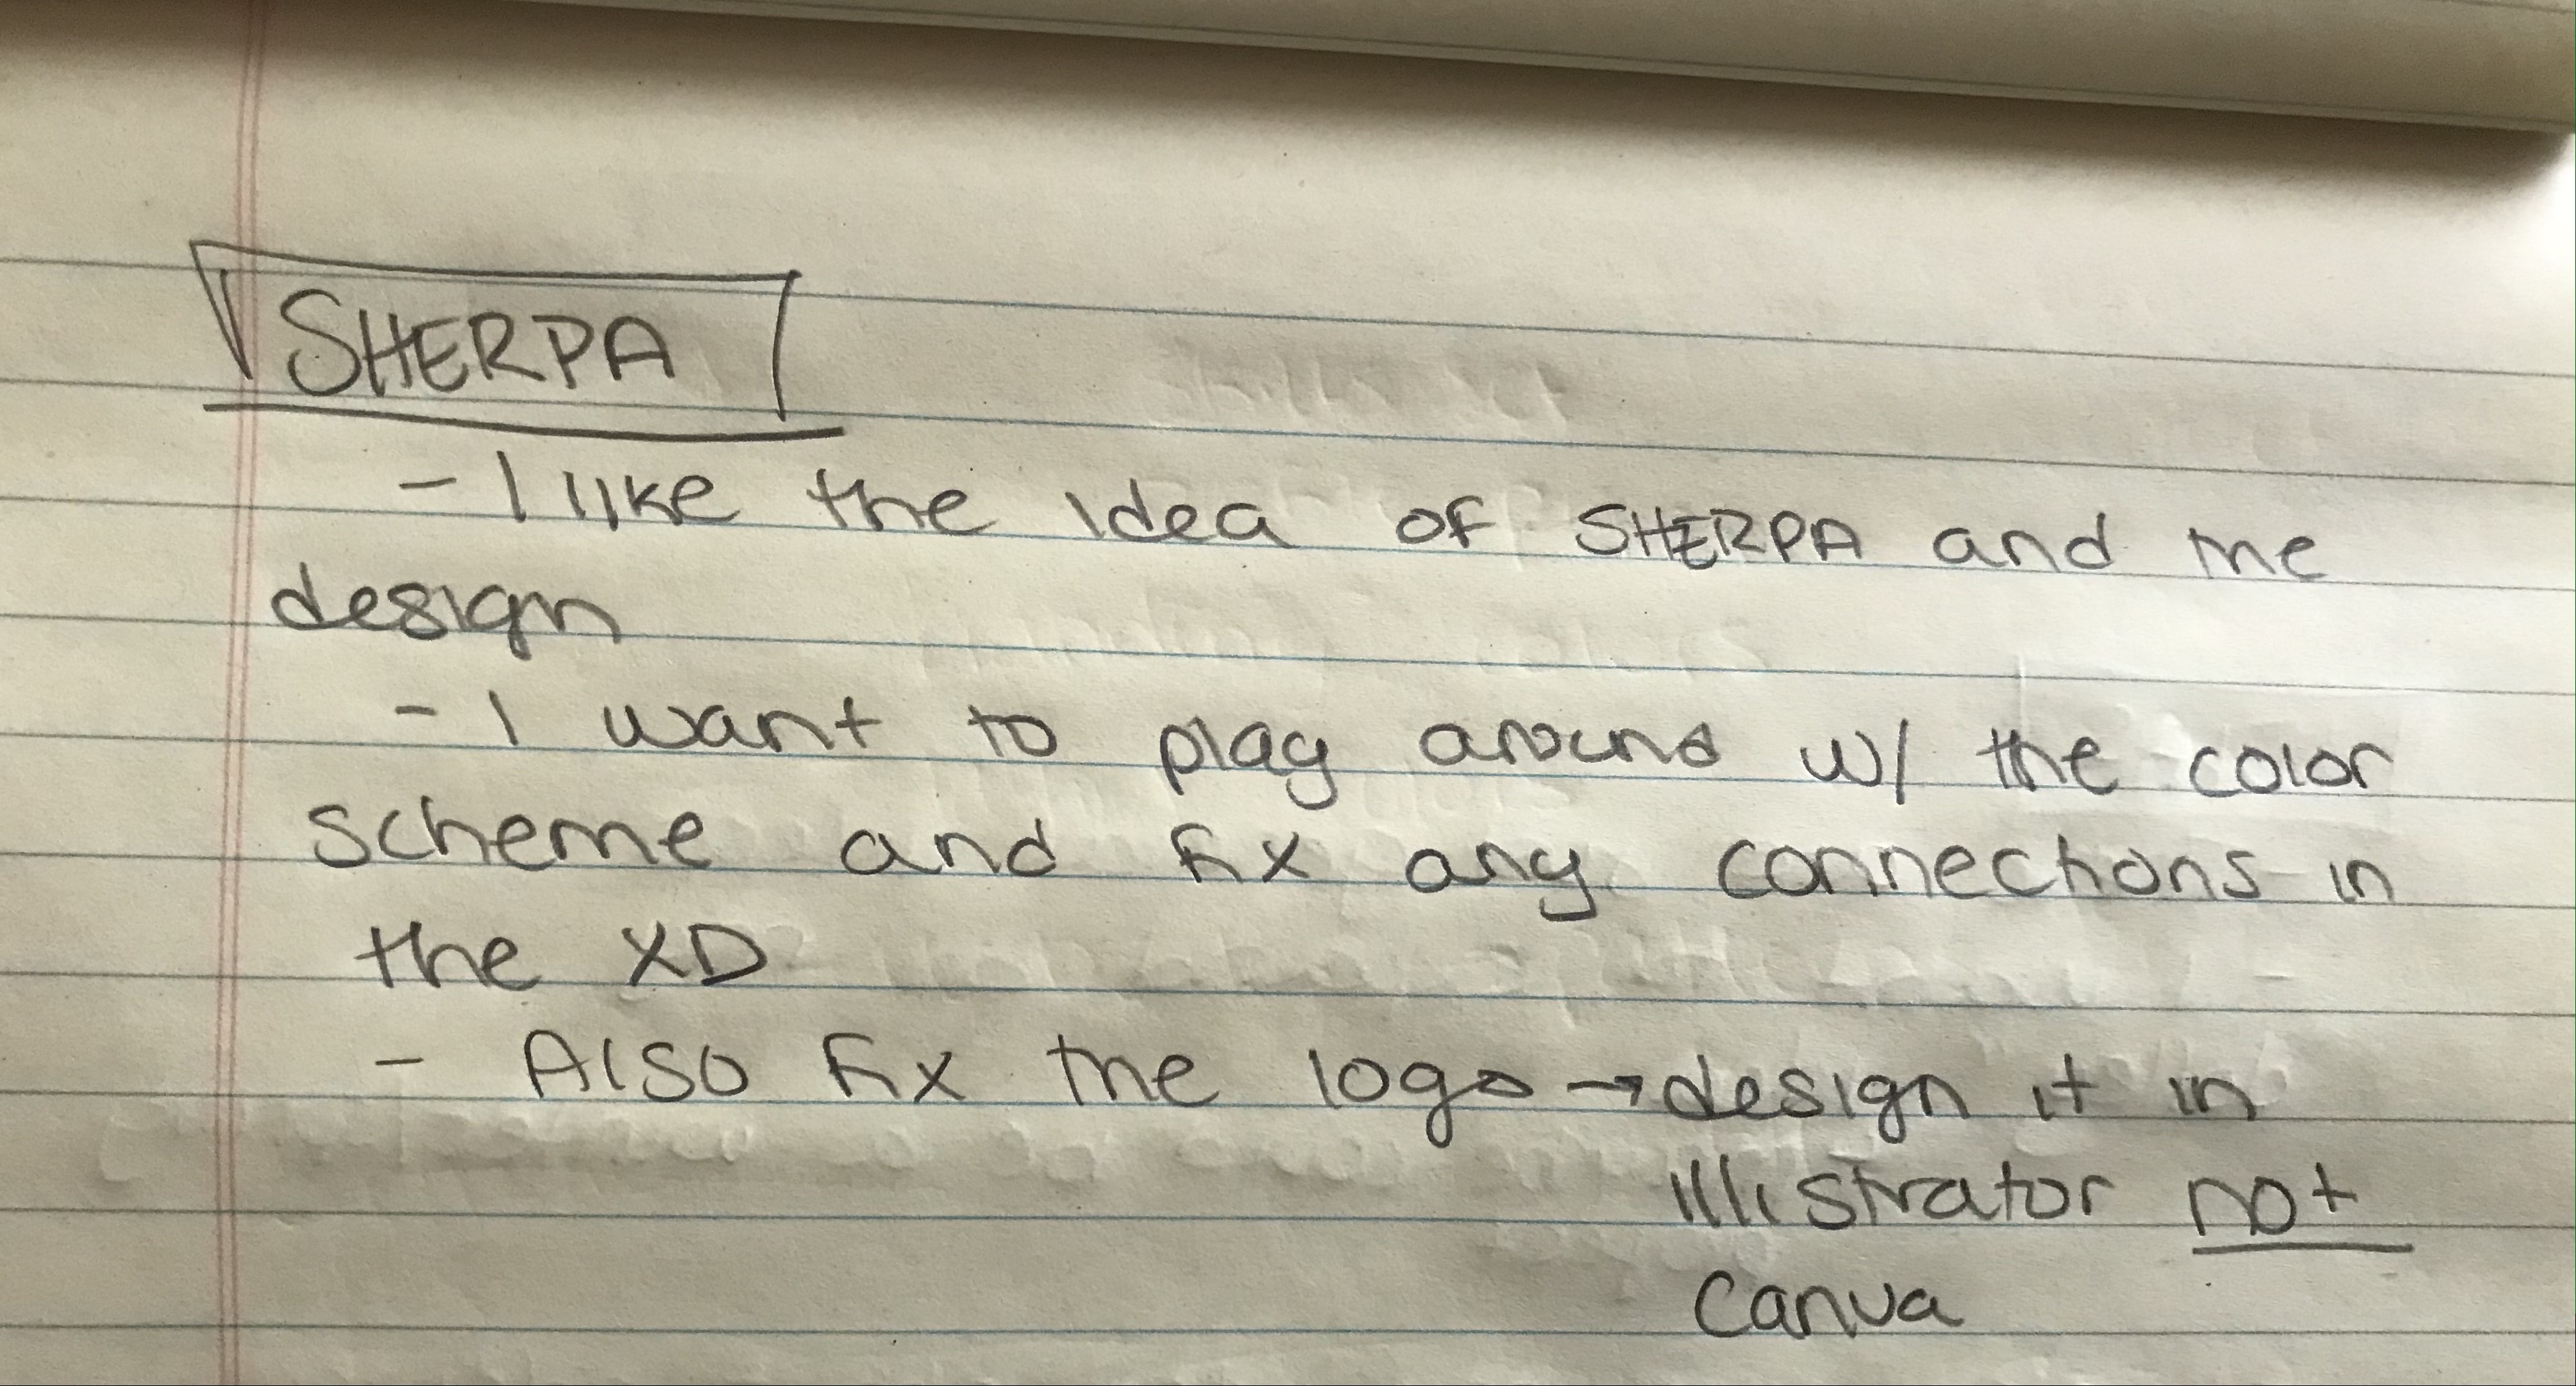 SHERPA
- I like the idea of SHERPA and the
design
- I want to play around w/ the color
scheme and fix any connections in
the XD
- Also fix the logo → design it in
illistrator not
Canva